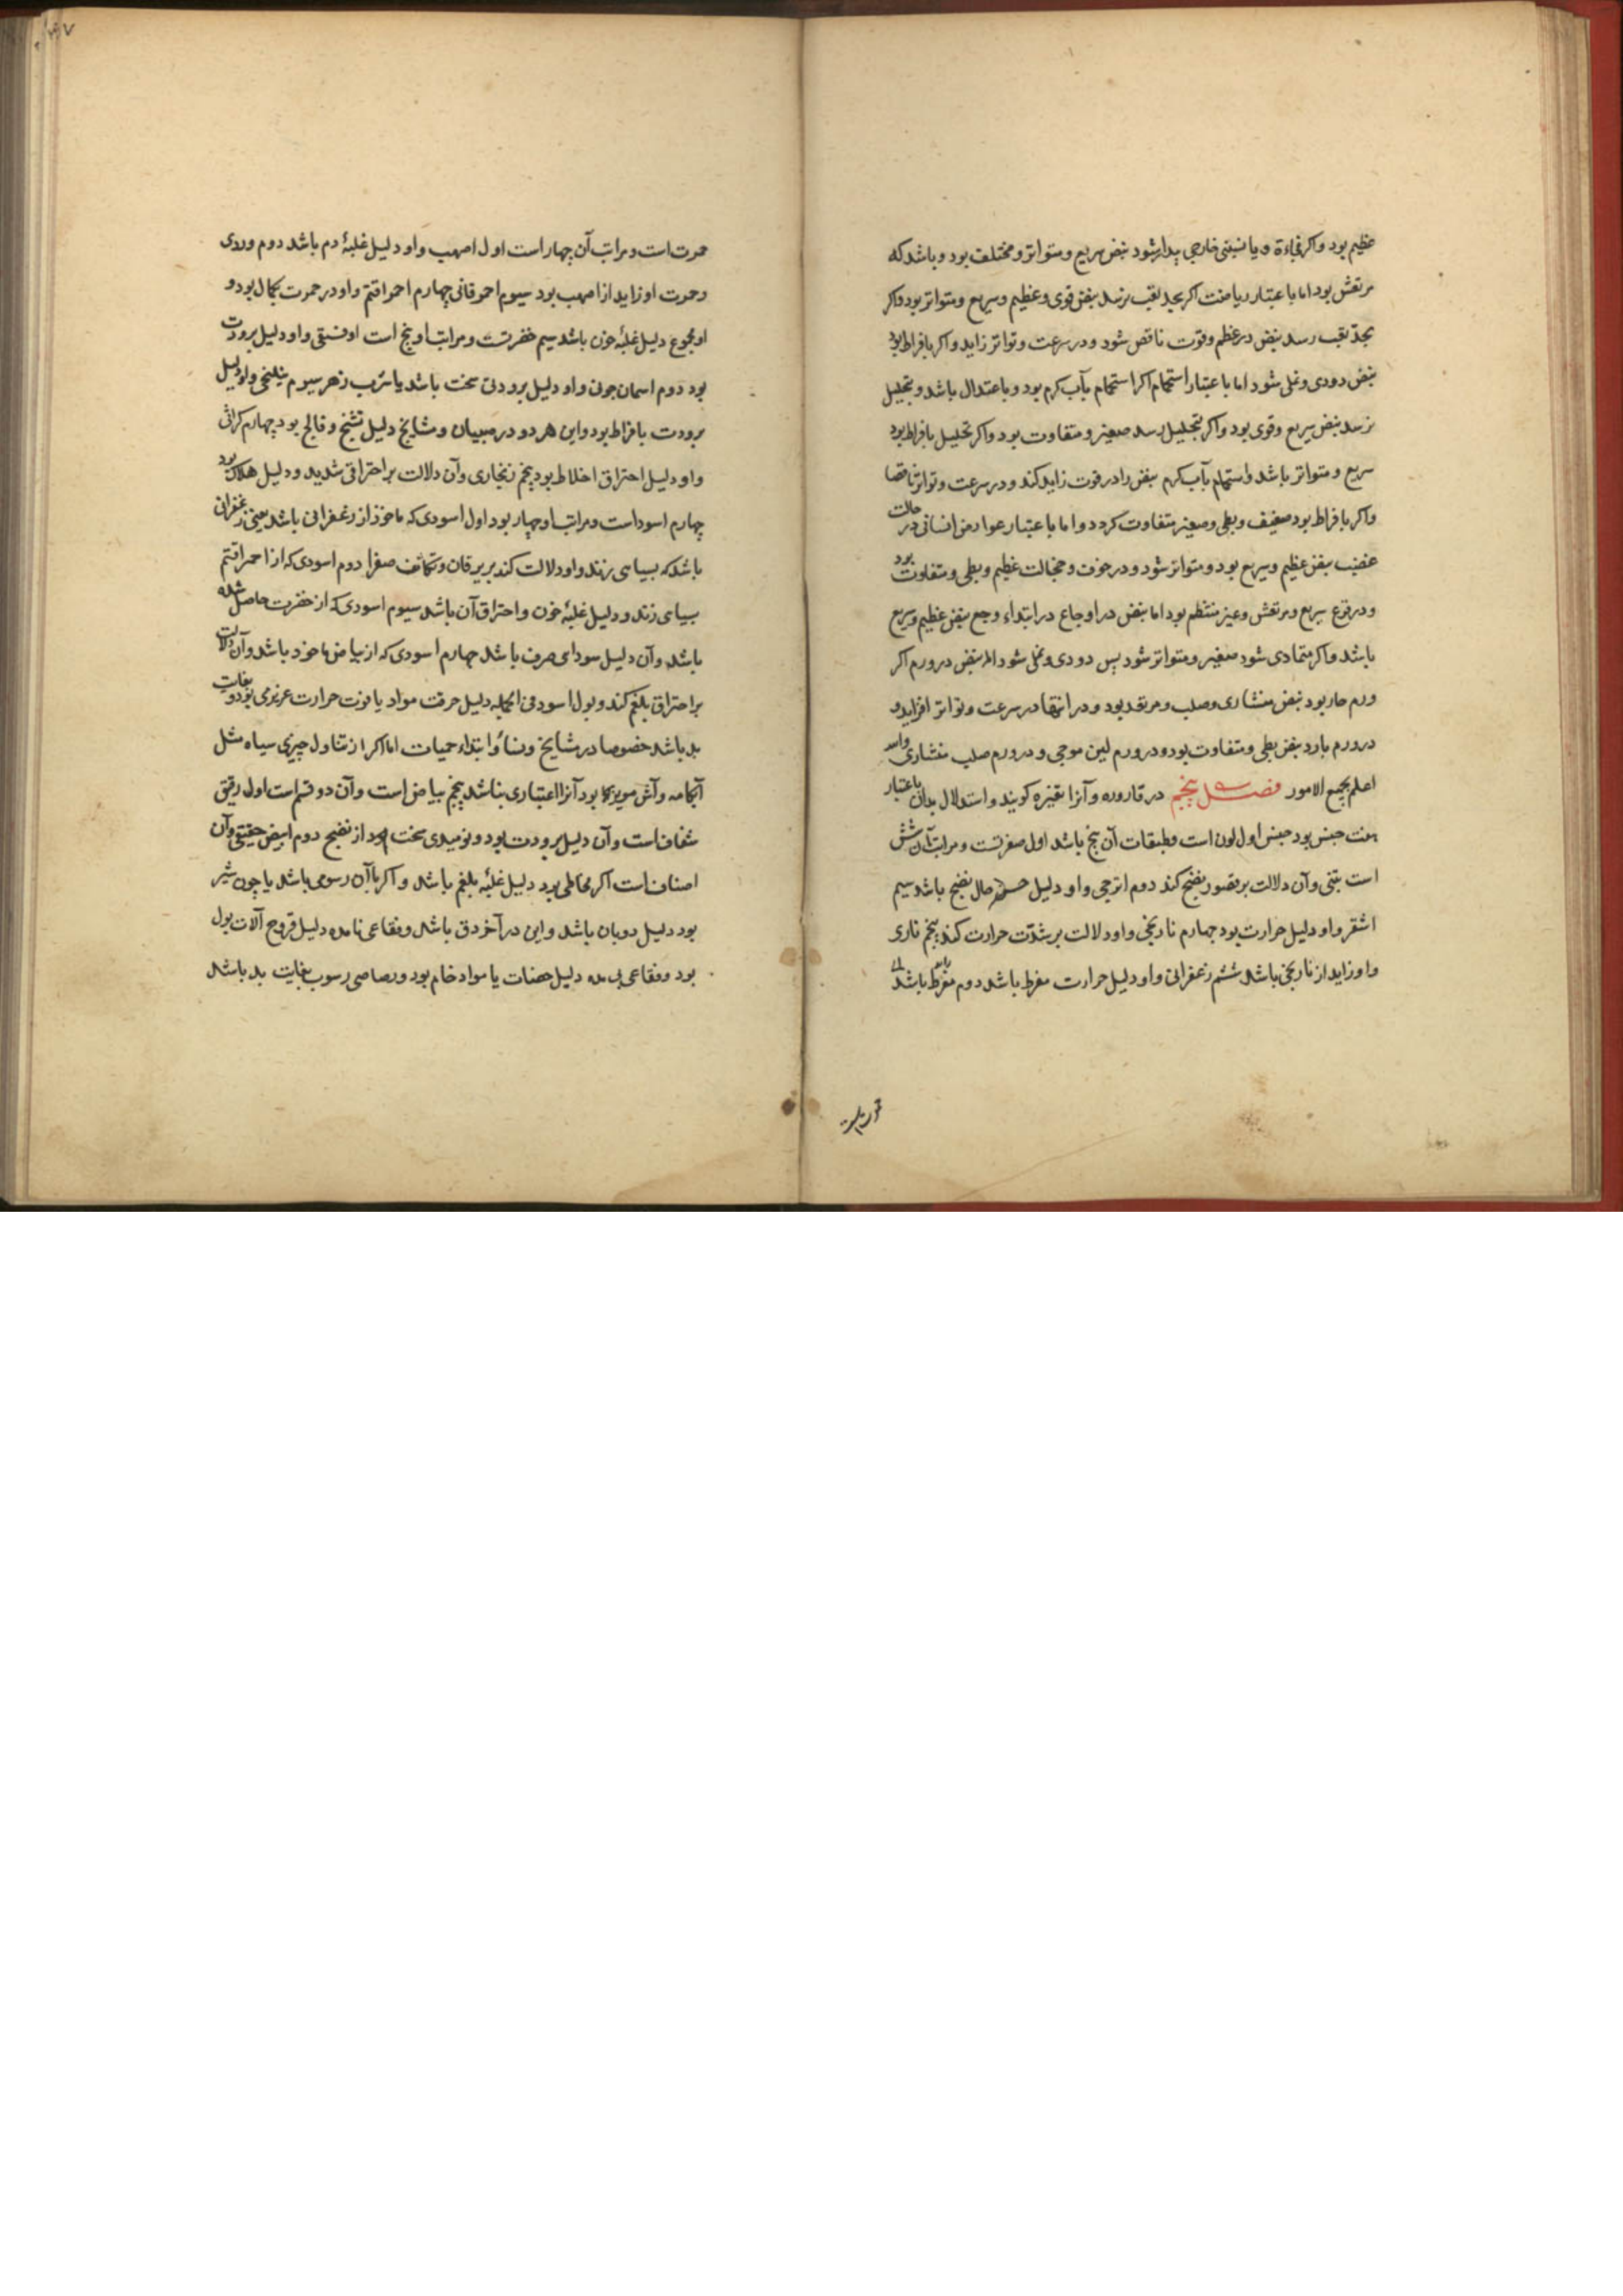 عظیم بود واکر فجاءة ویا نسبتی خارجی بیدار شود نبض سریع ومتواتر ومختلف بود وباشد که
مرتعش بود اما با عتبار ریاضت اکر بحد تعب نرسد نبض قوی وعظیم وسریع ومتواتر بود واکر
بحد تعب رسد نبض در عظم وقوت ناقص شود ودر سرعت وتواتر زاید واکر بافراط بود
نبض دودی ونملی شود اما با عتبار استحمام اکر استحمام بآب کرم بود وباعتدال باشد وبتحلیل
نرسد نبض سریع وقوی بود واکر بتحلیل رسد صغیر ومتفاوت بود واکر تحلیل بافراط بود
سریع ومتواتر باشد واستحمام بآب کرم نبض را در قوت زاید کند ودر سرعت وتواتر ناقص
واکر بافراط بود ضعیف وبطی وصغیر متفاوت کردد واما با عتبار عوارض انسانی در حالت
غضب نبض عظیم وسریع بود ومتواتر شود ودر خوف وخجالت عظیم وبطی ومتفاوت بود
ودر فزع سریع ومرتعش وغیر منتظم بود اما نبض در اوجاع در ابتداء وجع نبض عظیم وسریع
باشد واکر متمادی شود صغیر ومتواتر شود پس دودی ونملی شود اما نبض در ورم اکر
ورم حار بود نبض منشاری وصلب ومرتعد بود ودر انتها در سرعت وتواتر افزاید و
در ورم بارد نبض بطی ومتفاوت بود ودر ورم لین موجی ودر ورم صلب منشاری والله
اعلم بجمیع الامور فصل پنجم در قاروره وآنرا تفسره کویند واستدلال بدان باعتبار
هفت جنس بود جنس اول لون است وطبقات آن پنج باشد اول صفرتست ومراتب آن شش
است تبنی وآن دلالت بر قصور نضج کند دوم اترجی واو دلیل حسن حال نضج باشد سیم
اشقر واو دلیل حرارت بود چهارم نارنجی واو دلالت بر شدت حرارت کند پنجم ناری
واو زاید از نارنجی باشد ششم زعفرانی واو دلیل حرارت مفرط باشد دوم
حمرت است
حمرت است ومراتب آن چهار است اول اصهب واو دلیل غلبهٔ دم باشد دوم وردی
وحمرت او زاید از اصهب بود سیوم احمر قانی چهارم احمر اقتم واو در حمرت بکمال بود و
او مجموع دلیل غلبهٔ خون باشد سیم خضرتست ومراتب او پنج است اول فستقی واو دلیل برودت
بود دوم اسمان جونی واو دلیل برودتی سخت باشد یا شرب زهر سیوم نیلنجی واو دلیل
برودت بافراط بود واین هر دو در صبیان ومشایخ دلیل تشنج وفالج بود چهارم کراثی
واو دلیل احتراق اخلاط بود پنجم زنجاری وآن دلالت بر احتراقی شدید ودلیل هلاک بود
چهارم اسود است ومراتب او چهار بود اول اسودی که ماخوذ از زعفرانی باشد یعنی زعفرانی
باشد که بسیاهی زند واو دلالت کند بر یرقان وتکاثف صفرا دوم اسودی که از احمر اقتم
بسیاهی زند ودلیل غلبهٔ خون واحتراق آن باشد سیوم اسودی که از خضرت حاصل شده
باشد وآن دلیل سودای صرف باشد چهارم اسودی که از بیاض ماخوذ باشد وآن دلالت
بر احتراق بلغم کند وبول اسود فی الجمله دلیل حرقت مواد یا فوت حرارت غریزی بود وبغایت
بد باشد خصوصا در مشایخ ونساء وابتداء حمیات اما اکر از تناول چیزی سیاه مثل
آبکامه وآش مویزکا بود آنرا اعتباری نباشد پنجم بیاض است وآن دو قسم است اول رقیق
شفاف است وآن دلیل برودت بود ونومیدی سخت بود از نضج دوم ابیض حقیقی وآن
اصناف است اکر مخاطی بود دلیل غلبهٔ بلغم باشد واکر باآن رسوبی باشد یا چون شیر
بود دلیل ذوبان باشد واین در آخر دق باشد وفقاعی نامده دلیل قروح آلات بول
بود وفقاعی بی مده دلیل حصات یا مواد خام بود ورصاصی رسوب بغایت بد باشد